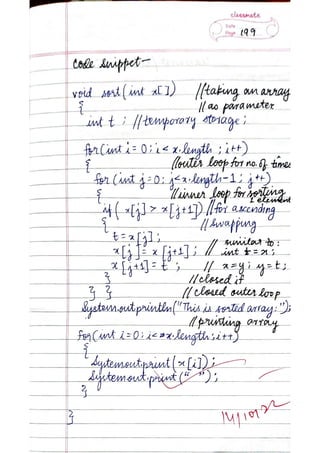 classmate
Date
Page 199
Code snippet-
void sort(int x[]) //taking an array
{ // as parameter
int t ; //temporary storage;
for(int i=0; i<x.length ; i++)
{ //outer loop for no. of times
for (int j=0; j<x.length-1; j++)
{ //inner loop for sorting element
if (x[j] > x[j+1]) //for ascending
{ //swapping
t=x[j]; // similar to:
x[j]=x[j+1]; // int t=x;
x[j+1]=t ; // x=y; y=t;
} //closed if
} } // closed outer loop
System.out.println("This is sorted array:");
//printing array
for(int i=0; i<x.length;i++)
{
System.out.print(x[i]);
System.out.print(" ");
}
}
14/10/22